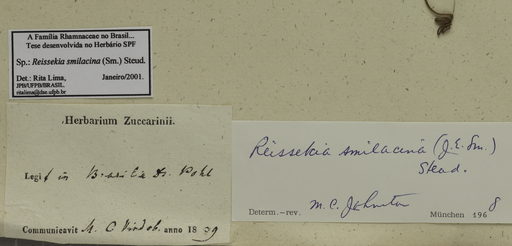 A Família Rhamnaceae no Brasil...
Tese desenvolvida no Herbário SPF
Sp.: Reissekia smilacina (Sm.) Steud.
Det.: Rita Lima, Janeiro/2001.
JPB/UFPB/BRASIL
ritalima@dse.ufpb.br
Herbarium Zuccarinii.
Legit in Brasilia Dr. Pohl
Communicavit M. C. Vindob. anno 1839
Reissekia smilacina (J.E. Sm.)
Steud.
M.C. Johnston
Determ.–rev. München 1968